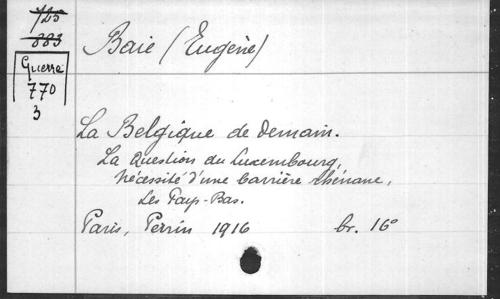 725
883
Guerre
770
3
Baie (Eugène)
La Belgique de Demain.
La Question du Luxembourg,
Nécessité d'une barrière rhénane,
Les Pays-Bas.
Paris, Perrin 1916 br. 16°